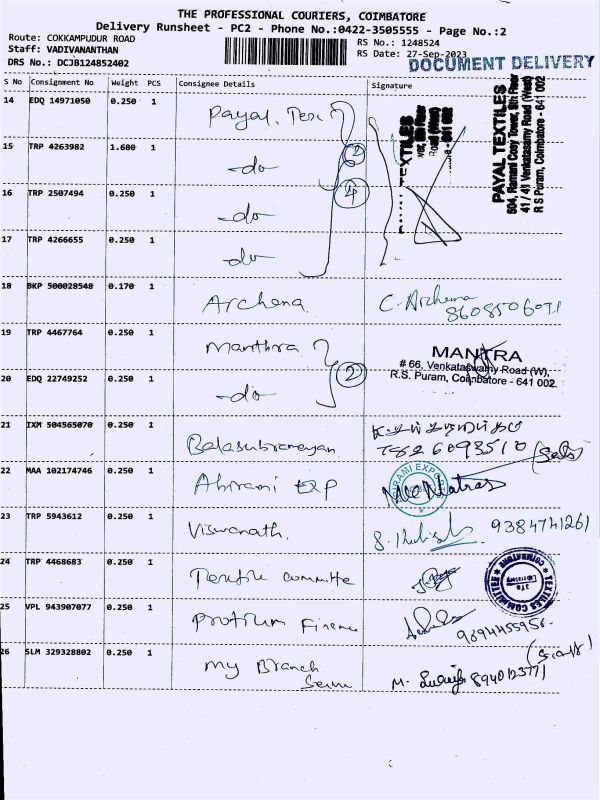 THE PROFESSIONAL COURIERS, COIMBATORE
Delivery Runsheet - PC2 - Phone No.:0422-3505555 - Page No.:2
Route: COKKAMPUDUR ROAD
Staff: VADIVANANTHAN
DRS No.: DCJB124852402
RS No.: 1248524
RS Date: 27-Sep-2023
DOCUMENT DELIVERY
S No Consignment No Weight PCS Consignee Details Signature
14 EDQ 14971050 0.250 1 Payal. Tex.
PAYAL TEXTILES
504, Ramani Cosy Tower, 5th Floor
41 / 41 Venkatasamy Road (West)
R S Puram, Coimbatore - 641 002
15 TRP 4263982 1.680 1 -do 2
16 TRP 2507494 0.250 1 -do 4
17 TRP 4266655 0.250 1 -do
18 BKP 500028548 0.170 1 Archena C. Archena
8608506071
19 TRP 4467764 0.250 1 Manthra
MANTRA
# 66, Venkataswamy Road (W),
R.S. Puram, Coimbatore - 641 002.
20 EDQ 22749252 1 -do 2
0.250
21 IXM 504565070 0.250 1 Balasubramaniyan
22 MAA 102174746 0.250 1 Abirami Exp
23 TRP 5943612 0.250 1 Viswanath. 9384741261
24 TRP 4468683 0.250 1 Textile committe
TEXTILES COMMITTEE
Laboratory
25 VPL 943907077 0.250 1 Finance
9694455956
26 SLM 329328802 0.250 1 My Branch
M. 8940123771